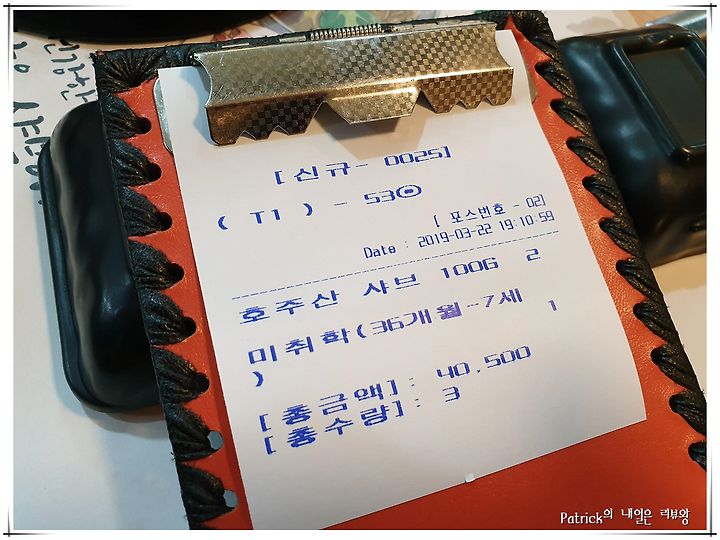 [신규- 0025]
( T1 ) - 53⊙
[ 포스번호 - 02]
Date : 2019-03-22 19:10:59
호주산 샤브 100G 2
미취학(36개월-7세 1
)
[총금액]: 40,500
[총수량]: 3
Patrick의 내일은 리뷰왕